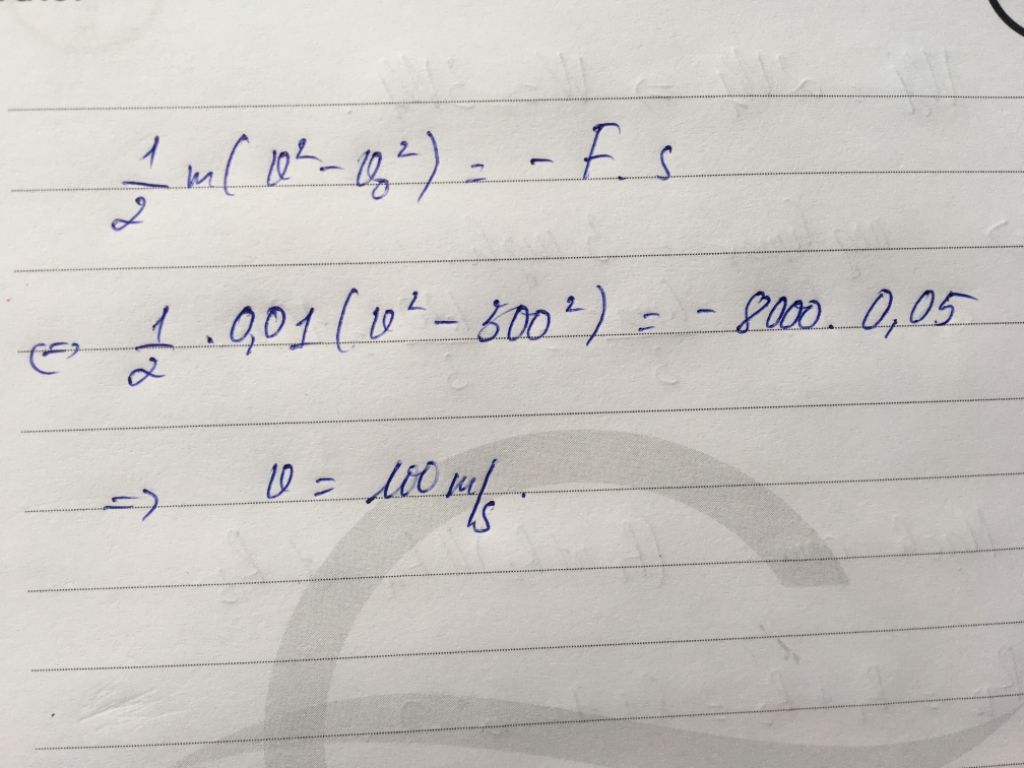 1/2 m(v² - v₀²) = - F. s
<=> 1/2 . 0,01 (v² - 500²) = - 8000. 0,05
=> v = 100 m/s.